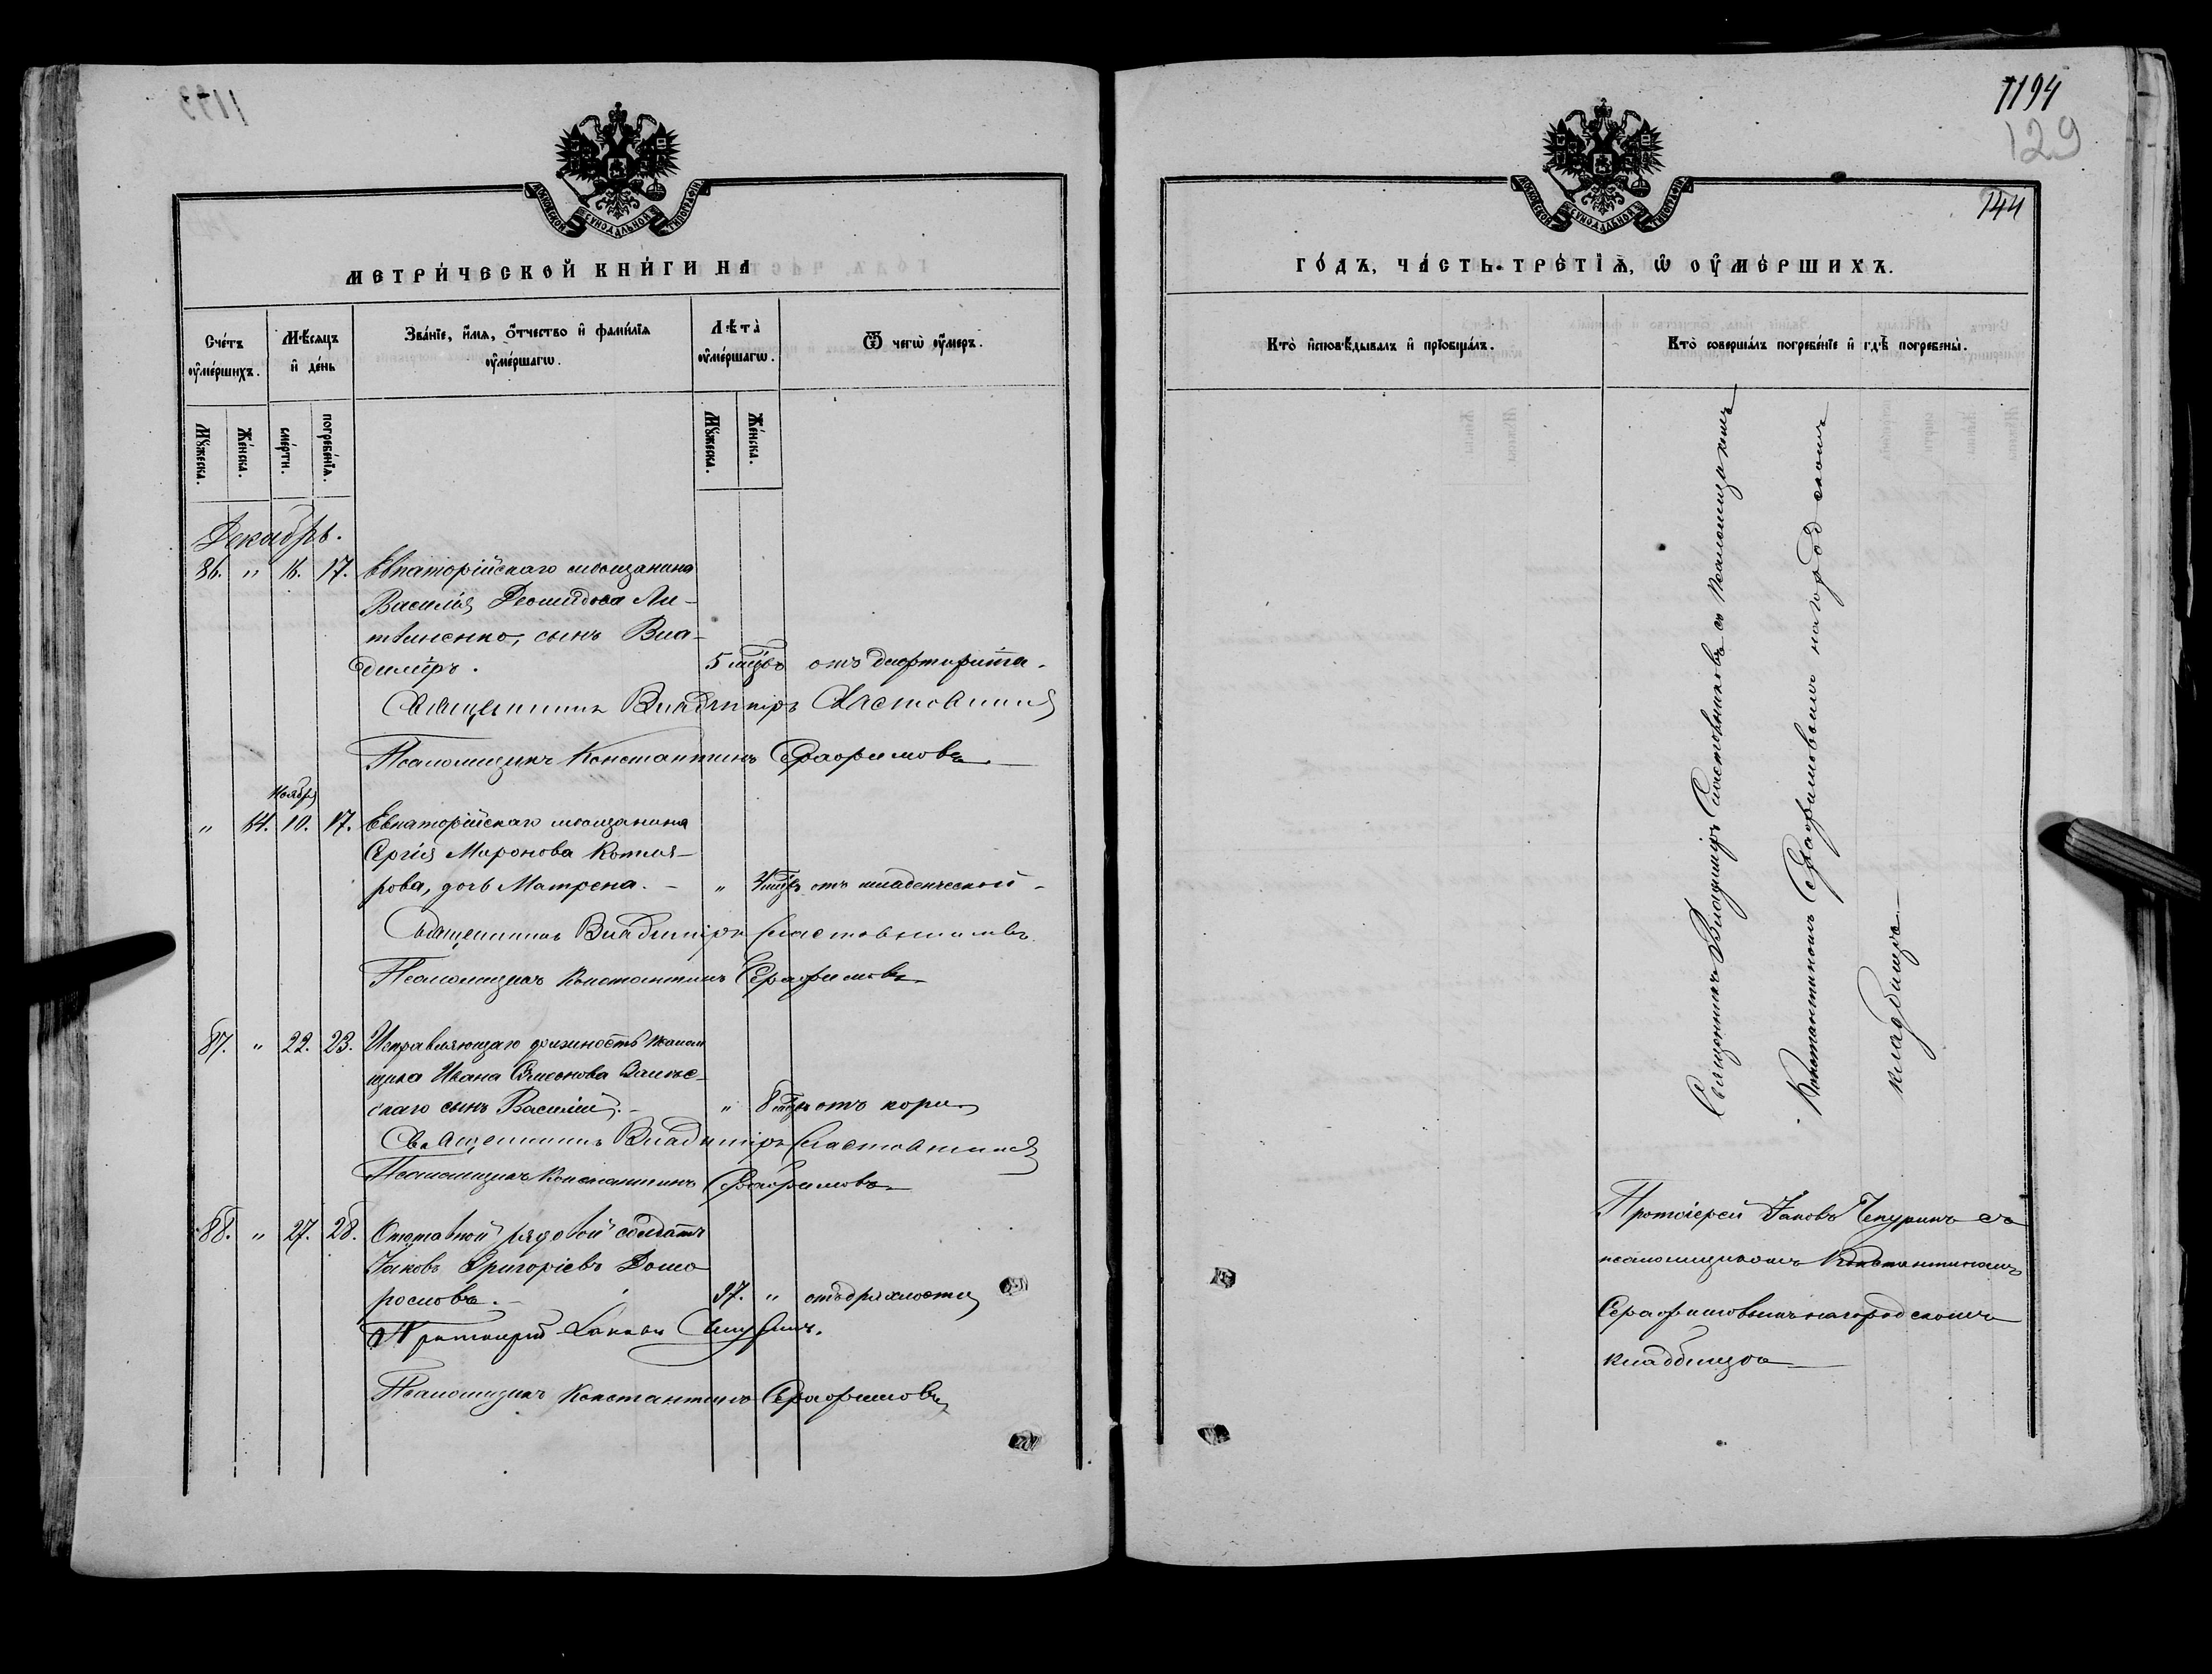 1194
129
144
МОСКОВСКОЙ СѴНОДАЛЬНОЙ ТИПОГРАФІИ
МЕТРИ́ЧЕСКОЙ КНИ́ГИ НА
Сче́тъ ᲂу҆ме́ршихъ.
Мѣ́сяцъ и҆ де́нь
Зва́нїе, и҆́мя, ѻ҆́тчество и҆ фами́лїя ᲂу҆ме́ршагѡ.
Лѣ́та ᲂу҆ме́ршагѡ.
Ѿ чегѡ̀ ᲂу҆́меръ.
Мꙋ́жеска.
Же́нска.
сме́рти.
погребе́нїя.
Мꙋ́жеска.
Же́нска.
Декабрь.
86. " 16. 17. Евпаторійскаго мѣщанина
Василія Деомидова Ли-
твиненко, сынъ Вла-
диміръ. 5 мцвъ отъ дифтерита.
Священникъ Владиміръ
Псаломщикъ Константинъ Серафимовъ
Ноября
" 64. 10. 17. Евпаторійскаго мѣщанина
Сергія Миронова Котля-
рова, дочь Матрена. " 4 мцвъ отъ младенческой
Священникъ Владиміръ
Псаломщикъ Константинъ Серафимовъ
87. " 22. 23. Исправляющаго должность псалом
щика Ивана Симеонова
скаго сынъ Василій. " 8 мцвъ отъ кори
Священникъ Владиміръ
Псаломщикъ Константинъ Серафимовъ
88. " 27. 28. Отставной рядовой солдатъ
Іаковъ Григоріевъ Домо
рословъ. 97. " отъ дряхлости
Протоіерей Іаковъ Чепуринъ.
Псаломщикъ Константинъ Серафимовъ
МОСКОВСКОЙ СѴНОДАЛЬНОЙ ТИПОГРАФІИ
ГО́ДЪ, ЧА́СТЬ ТРЕ́ТЇѦ, Ѡ҆ ОУ҆МЕ́РШИХЪ.
Кто̀ и҆сповѣ́дывалъ и҆ прїѻбща́лъ.
Кто̀ соверша́лъ погребе́нїе и҆ гдѣ̀ погребены̀.
Священникъ Владиміръ съ псаломщикомъ
Константиномъ Серафимовымъ на городскомъ
кладбищѣ
Протоіерей Іаковъ Чепуринъ съ
псаломщикомъ Константиномъ
Серафимовымъ на городскомъ
кладбищѣ